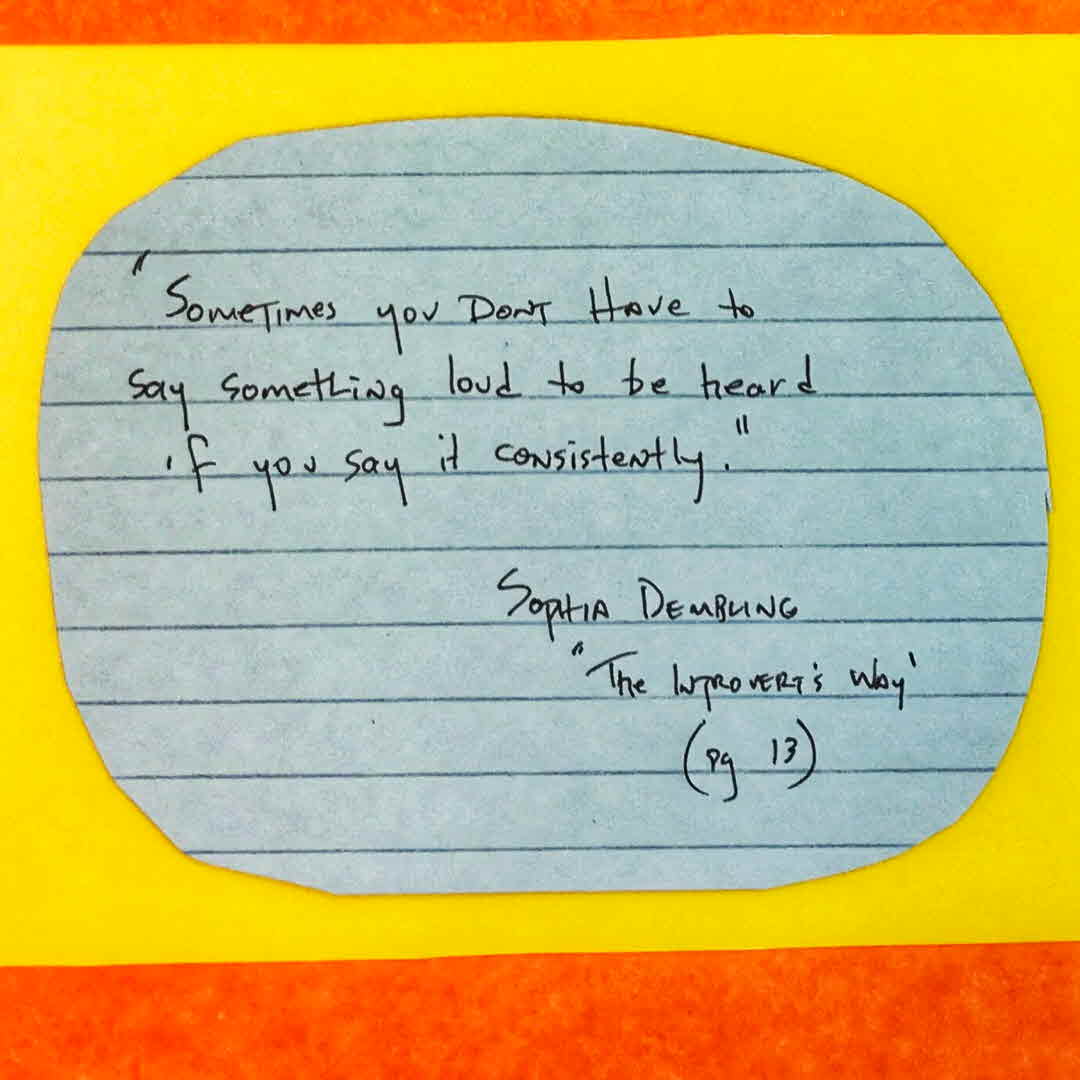 "Sometimes you Dont Have to
say something loud to be heard
if you say it consistently."
Sophia Dembling
"The Introvert's Way'
(pg 13)